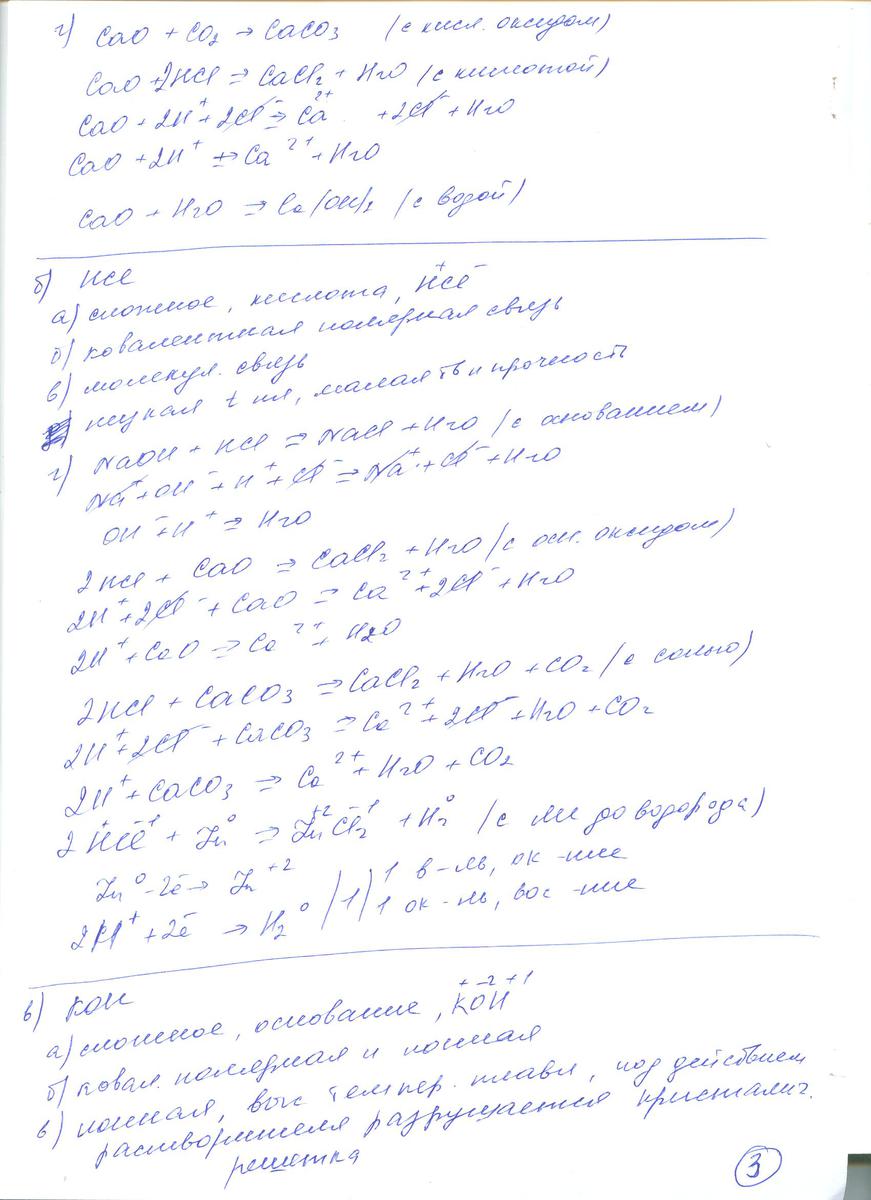 г) CaO + CO₂ → CaCO₃ (с кисл. оксидом)
CaO + 2HCl ⇒ CaCl₂ + H₂O (с кислотой)
CaO + 2H⁺ + 2Cl⁻ ⇒ Ca²⁺ + 2Cl⁻ + H₂O
CaO + 2H⁺ ⇒ Ca²⁺ + H₂O
CaO + H₂O ⇒ Ca(OH)₂ (с водой)
б) HCl
а) сложное, кислота, H⁺Cl⁻
б) ковалентная полярная связь
в) молекул. связь
низкая t пл, малая тв и прочность
г) NaOH + HCl ⇒ NaCl + H₂O (с основанием)
Na⁺ + OH⁻ + H⁺ + Cl⁻ ⇒ Na⁺ + Cl⁻ + H₂O
OH⁻ + H⁺ ⇒ H₂O
2HCl + CaO ⇒ CaCl₂ + H₂O (с осн. оксидом)
2H⁺ + 2Cl⁻ + CaO ⇒ Ca²⁺ + 2Cl⁻ + H₂O
2H⁺ + CaO ⇒ Ca²⁺ + H₂O
2HCl + CaCO₃ ⇒ CaCl₂ + H₂O + CO₂ (с солью)
2H⁺ + 2Cl⁻ + CaCO₃ ⇒ Ca²⁺ + 2Cl⁻ + H₂O + CO₂
2H⁺ + CaCO₃ ⇒ Ca²⁺ + H₂O + CO₂
2H⁺Cl⁻¹ + Zn⁰ ⇒ Zn⁺²Cl₂⁻¹ + H₂⁰ (с Ме до водорода)
Zn⁰ - 2e̅ → Zn⁺² | 1 в-ль, ок-ние
2H⁺ + 2e̅ → H₂⁰ | 1 | 1 ок-ль, вос-ние
в) KOH
а) сложное, основание, K⁺O⁻²H⁺¹
б) ковал. полярная и ионная
в) ионная, выс темпер. плавл, под действием
растворителя разрушается кристаллич.
решетка
3